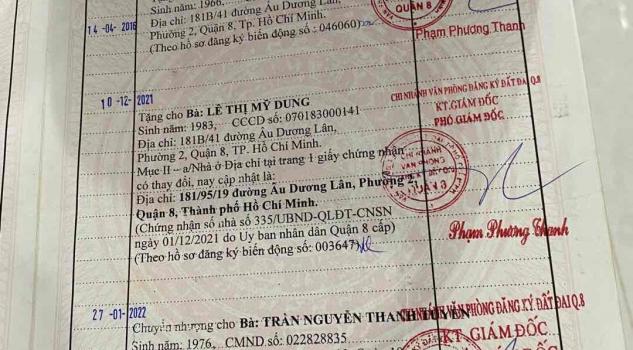 Sinh năm: 1966.
Địa chỉ: 181B/41 đường Âu Dương Lân,
14-04-2016
Phường 2, Quận 8, Tp. Hồ Chí Minh.
(Theo hồ sơ đăng ký biến động số : 046060)
QUẬN 8
Phạm Phương Thanh
10-12-2021
Tặng cho Bà: LÊ THỊ MỸ DUNG
Sinh năm: 1983, CCCD số: 070183000141
Địa chỉ: 181B/41 đường Âu Dương Lân,
Phường 2, Quận 8, TP. Hồ Chí Minh.
Mục II – a/Nhà ở Địa chỉ tại trang 1 giấy chứng nhận
có thay đổi, nay cập nhật là:
Địa chỉ: 181/95/19 đường Âu Dương Lân, Phường 2,
Quận 8, Thành phố Hồ Chí Minh.
(Chứng nhận số nhà số 335/UBND-QLĐT-CNSN
ngày 01/12/2021 do Uỷ ban nhân dân Quận 8 cấp)
(Theo hồ sơ đăng ký biến động số: 003647)
CHI NHÁNH VĂN PHÒNG ĐĂNG KÝ ĐẤT ĐAI Q.8
KT.GIÁM ĐỐC
PHÓ GIÁM ĐỐC
CHI NHÁNH
VĂN PHÒNG
QUẬN 8
Phạm Phương Thanh
27-01-2022
Chuyển nhượng cho Bà: TRẦN NGUYỄN THANH TUYỀN
Sinh năm: 1976, CMND số: 022828835
CHI NHÁNH VĂN PHÒNG ĐĂNG KÝ ĐẤT ĐAI Q.8
KT. GIÁM ĐỐC